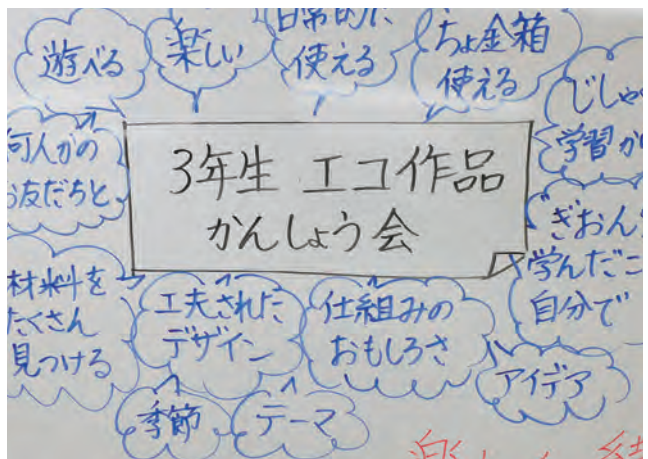 遊べる
楽しい
日常的に
使える
ちょ金箱
使える
じしゃ
学習か
何人かの
お友だちと
3年生 エコ作品
かんしょう会
ぎおん
学んだこ
自分で
材料を
たくさん
見つける
工夫された
デザイン
仕組みの
おもしろさ
アイデア
季節
テーマ